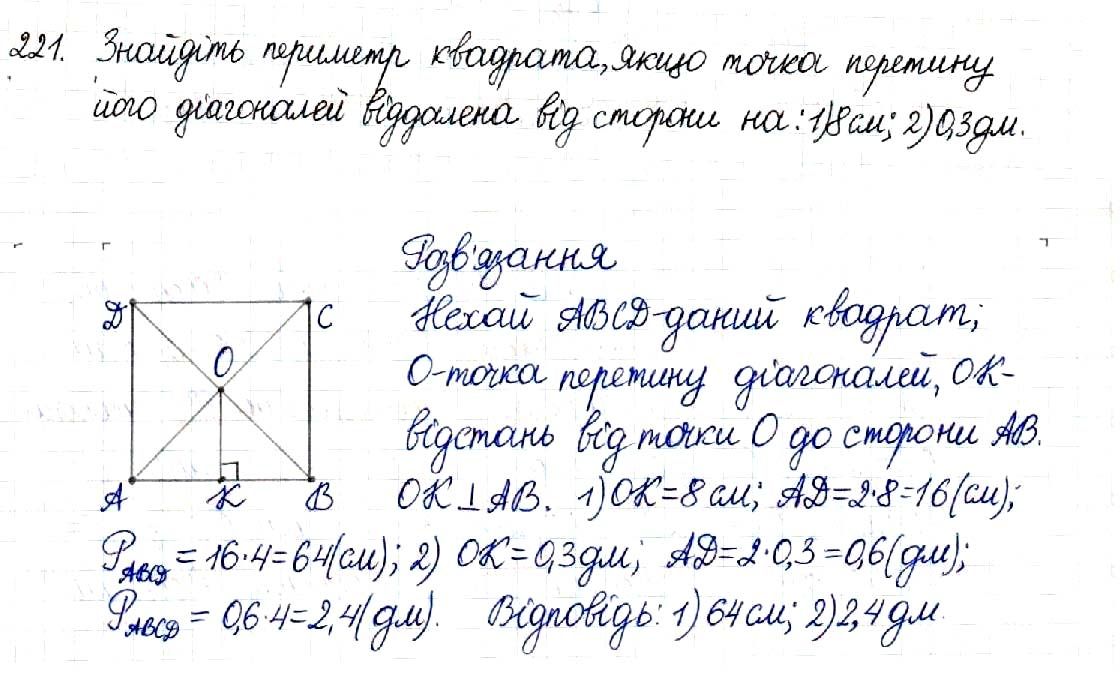 221. Знайдіть периметр квадрата, якщо точка перетину
його діагоналей віддалена від сторони на: 1)8см; 2)0,3дм.
Розв'язання
D
C
O
A
K
B
Нехай ABCD-даний квадрат;
O-точка перетину діагоналей, OK-
відстань від точки O до сторони AB.
OK⊥AB. 1)OK=8см; AD=2·8=16(см);
P_ABCD = 16·4=64(см); 2) OK=0,3дм; AD=2·0,3=0,6(дм);
P_ABCD = 0,6·4=2,4(дм). Відповідь: 1) 64см; 2)2,4дм.